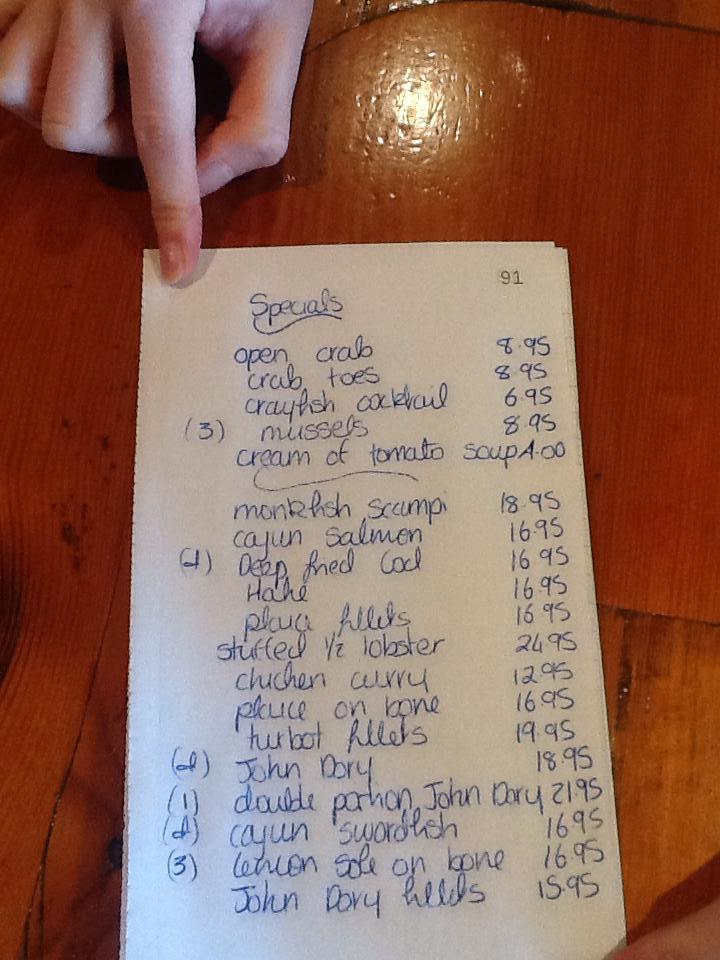 91
Specials
open crab 8.95
crab toes 8.95
crayfish cocktail 6.95
(3) mussels 8.95
cream of tomato soup 4.00
monkfish scampi 18.95
cajun salmon 16.95
(2) Deep fried Cod 16.95
Hake 16.95
plaice fillets 16.95
stuffed 1/2 lobster 24.95
chicken curry 12.95
plaice on bone 16.95
turbot fillets 19.95
(2) John Dory 18.95
(1) double portion John Dory 21.95
(2) cajun swordfish 16.95
(3) lemon sole on bone 16.95
John Dory fillets 15.95